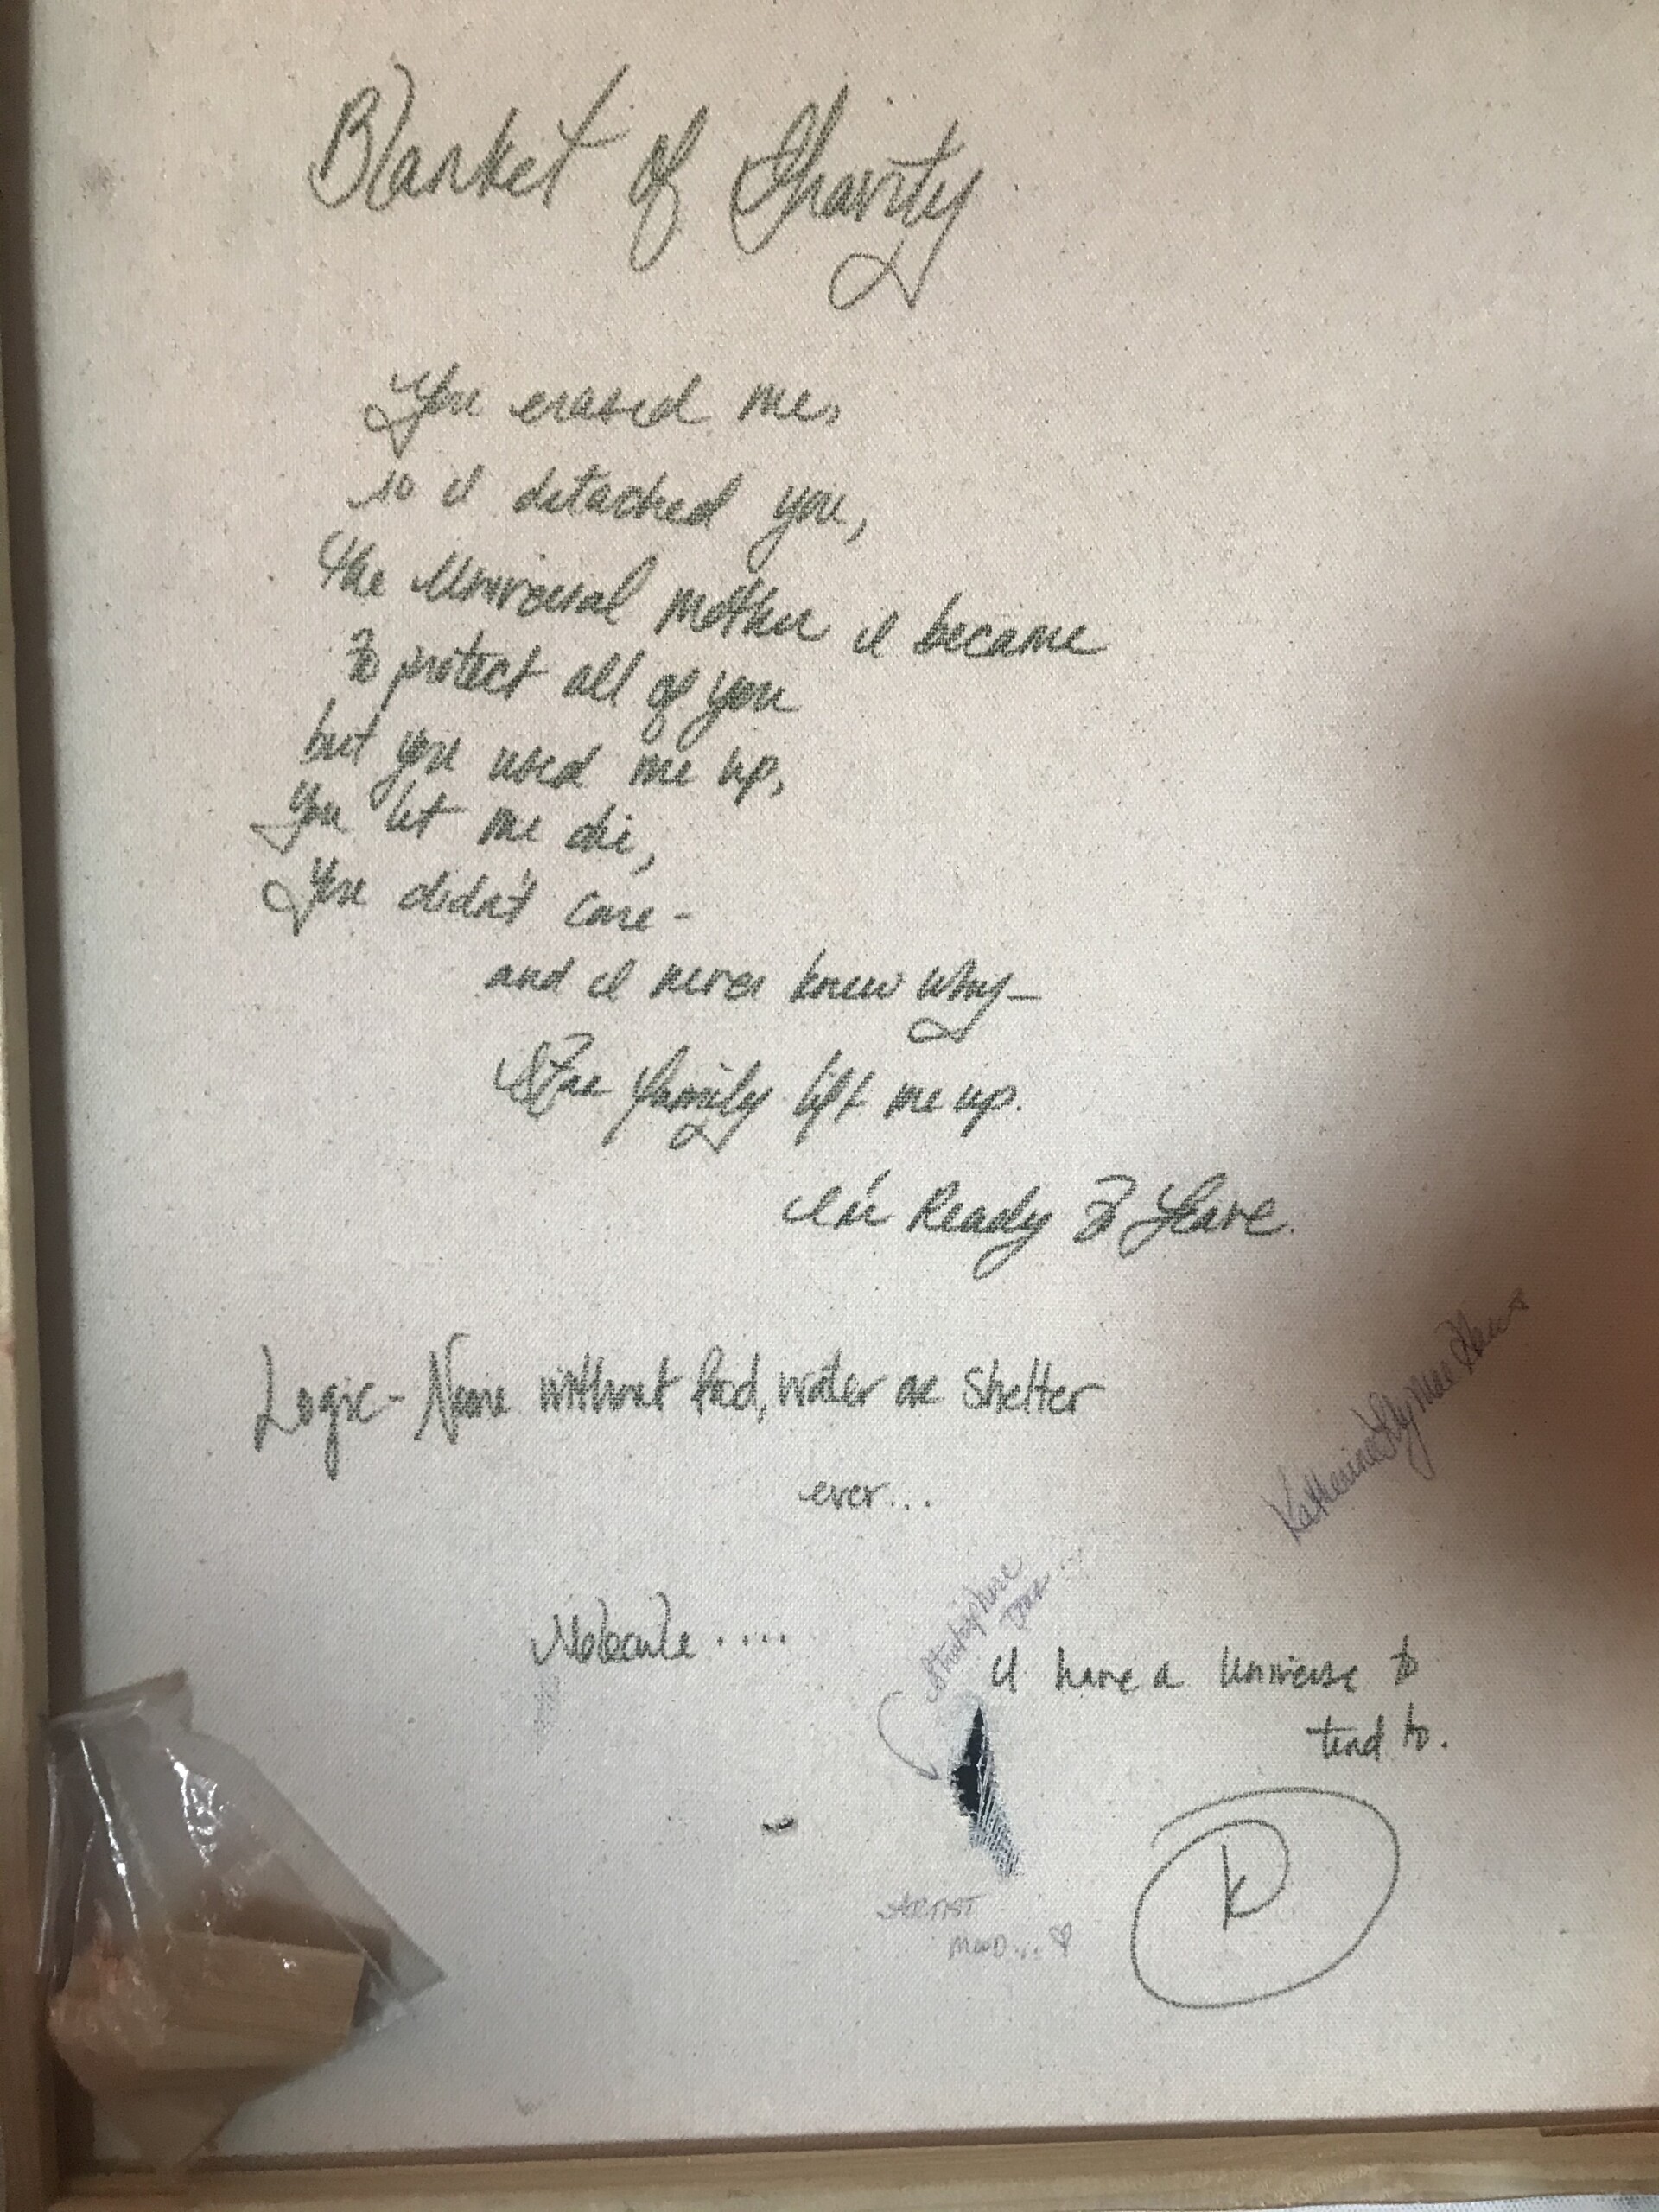 Blanket of Gravity
You erased me,
so I detached you,
The Universal mother I became
To protect all of you
but you used me up,
You let me die,
You didn't care-
and I never knew why-
Star Family lift me up.
I'm Ready To Leave.
Logic- None without food, water or shelter
ever...
Katherine
Stratosphere
Tear....
Molecule....
I have a Universe to
tend to.
K
ARTIST
MOOD... ♡